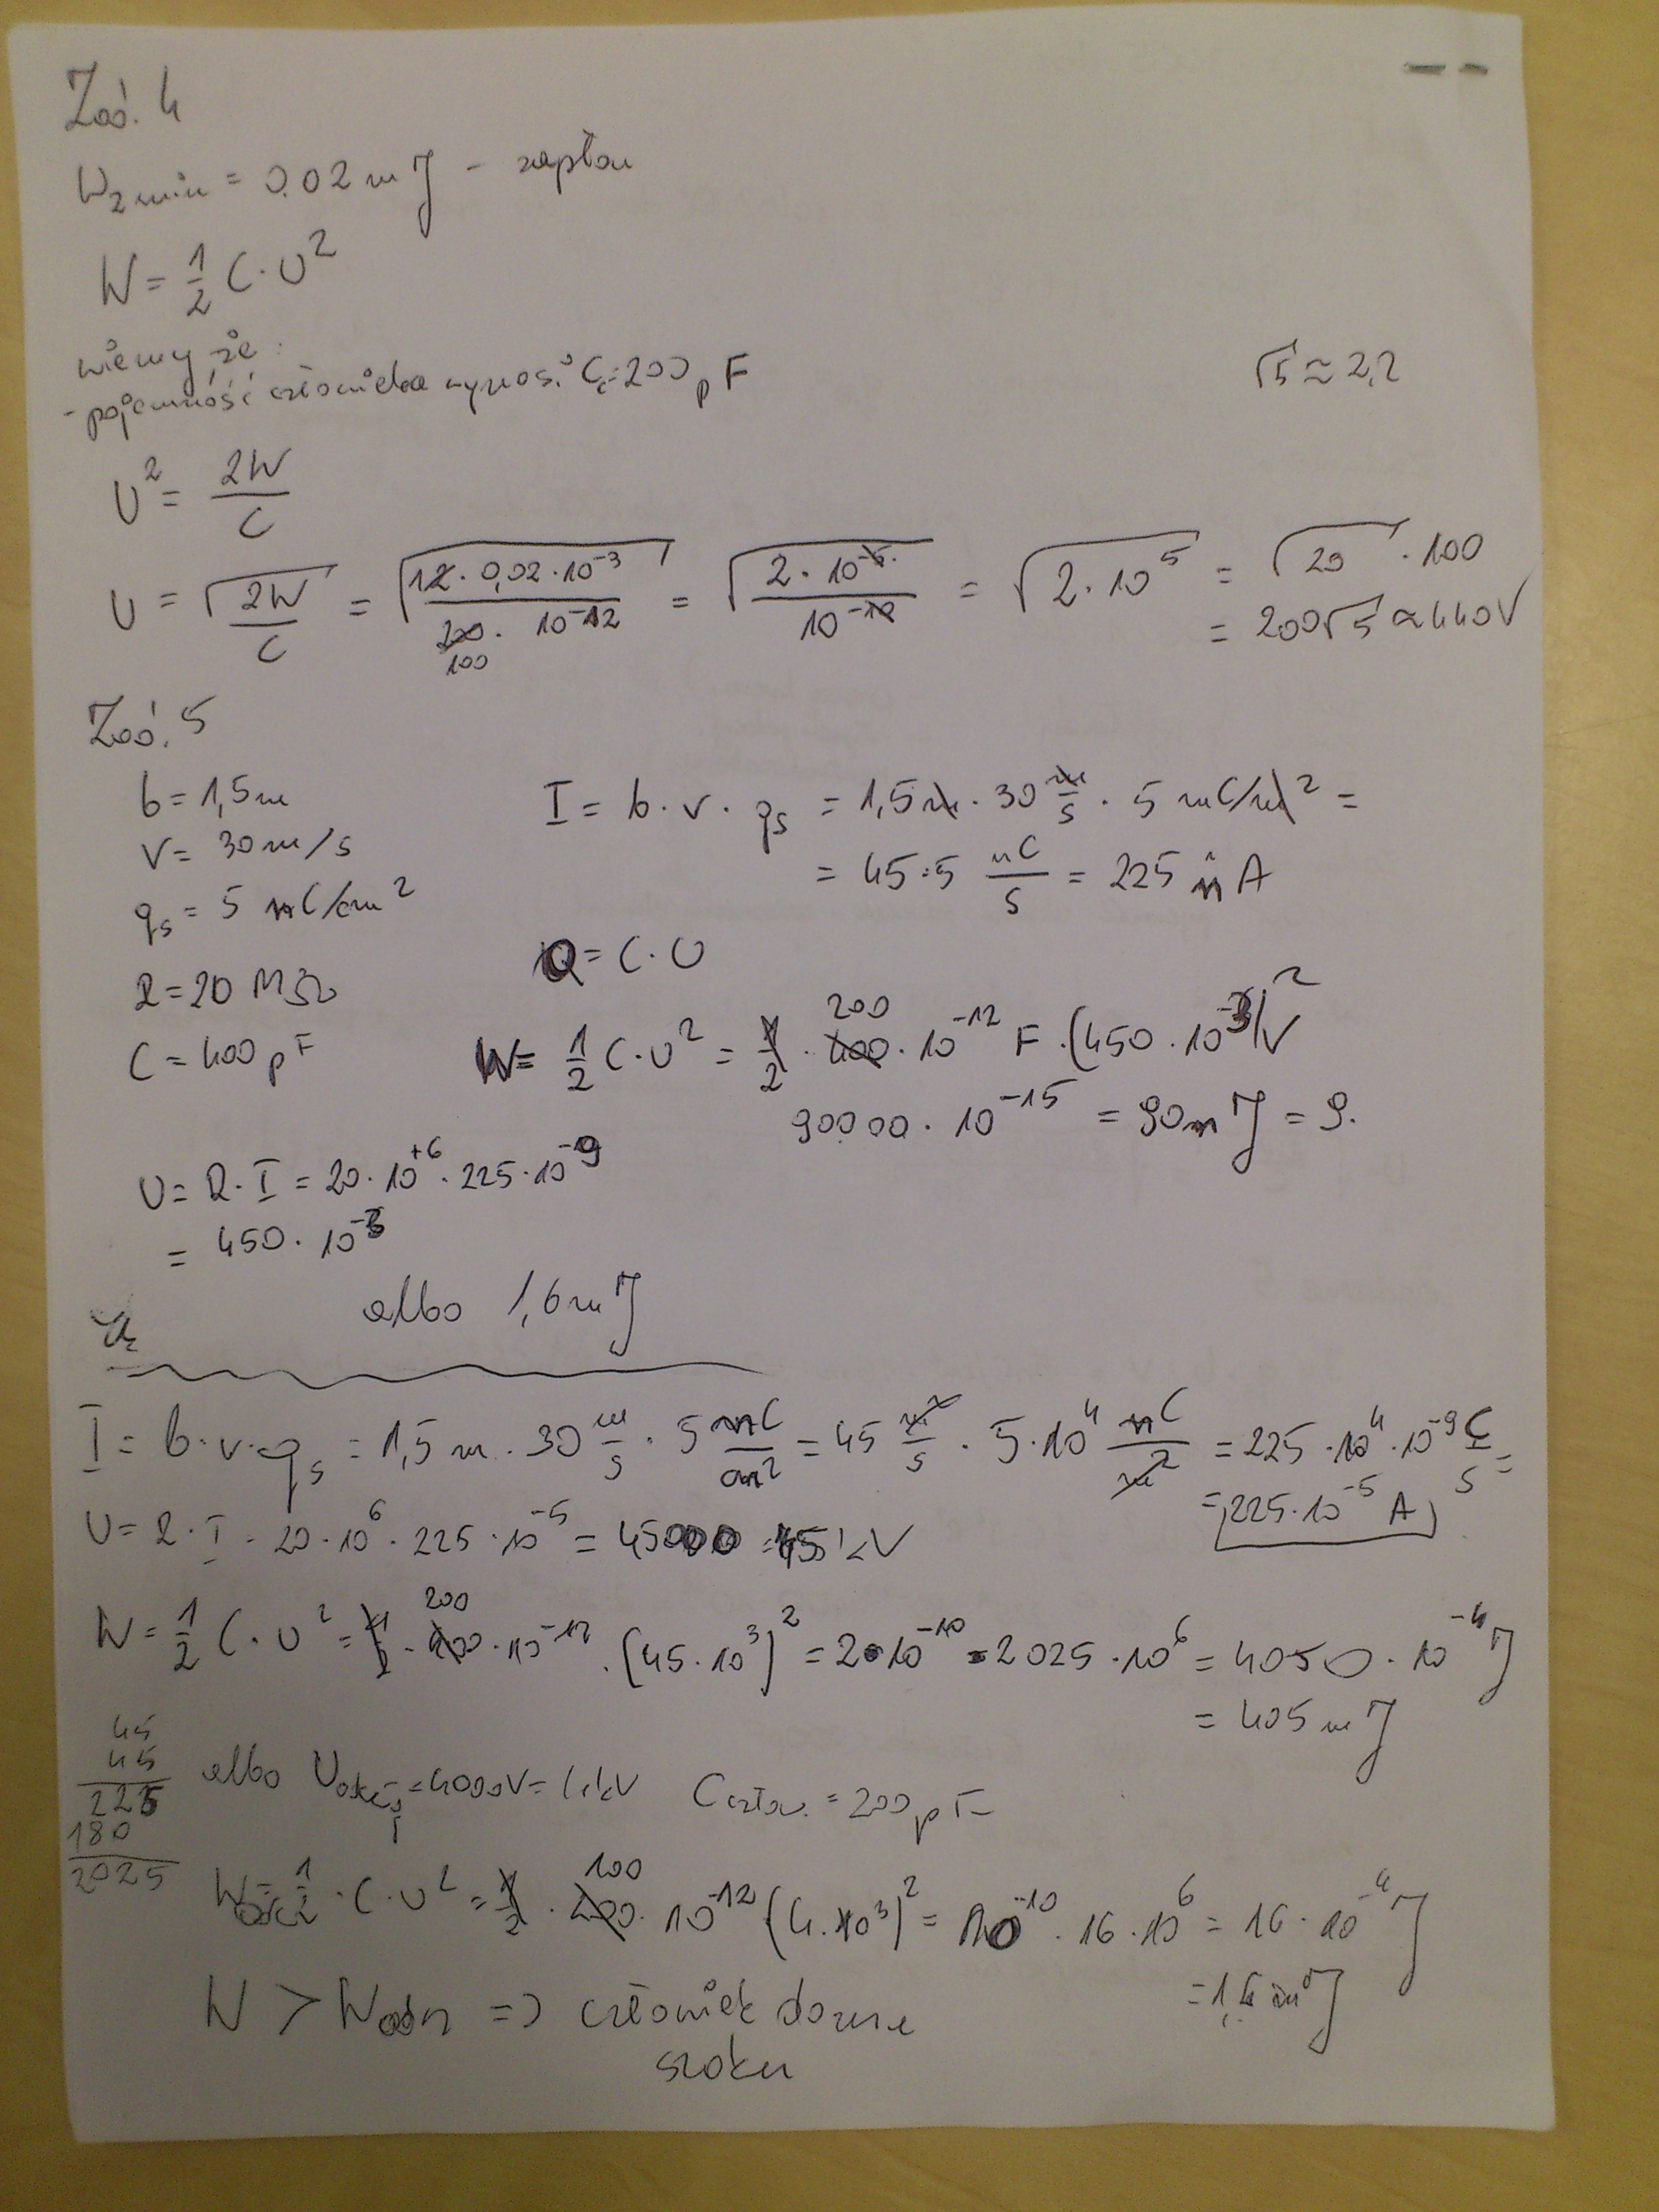 Zad. 4
Wzmin = 0.02 mJ - zapłon
W = 1/2 C·U²
wiemy, że:
- pojemność człowieka wynosi Cc=200pF
√5 ≈ 2,2
U² = 2W/C
U = √(2W/C) = √(2·0,02·10⁻³ / 200·10⁻¹² 100) = √(2·10⁻⁵ / 10⁻¹⁰) = √(2·10⁵) = √20 · 100
= 200√5 ≈ 440V
Zad. 5
b = 1,5m
V = 30m/s
qs = 5 nC/cm²
R = 20 MΩ
C = 400pF
I = b·v·qs = 1,5m · 30 m/s · 5 nC/m² =
= 45·5 nC/s = 225 nA
Q = C·U
W = 1/2 C·U² = 1/2 · 400 200 · 10⁻¹² F · (450·10⁻³)V²
90000 · 10⁻¹⁵ = 90 nJ = 9.
U = R·I = 20·10⁺⁶ · 225·10⁻⁹
= 450 · 10⁻³
albo 1,6mJ
I = b·v·qs = 1,5m · 30 m/s · 5 nC/cm² = 45 m²/s · 5·10⁴ nC/m² = 225·10⁴·10⁻⁹ C/s =
= 225·10⁻⁵ A
U = R·I = 20·10⁶ · 225·10⁻⁵ = 45000 = 45kV
W = 1/2 C·U² = 1/2 · 400 200 · 10⁻¹² · (45·10³)² = 2·10⁻¹⁰ · 2025·10⁶ = 4050 · 10⁻⁴ J
= 405 mJ
45
45
225
180
2025
albo = 4000V = 4kV Cczłow. = 200pF
= 1/2 · C·U² = 1/2 · 200 100 · 10⁻¹² (4·10³)² = 10⁻¹⁰ · 16·10⁶ = 16·10⁻⁴ J
= 1,6 mJ
W > => człowiek dozna
szoku